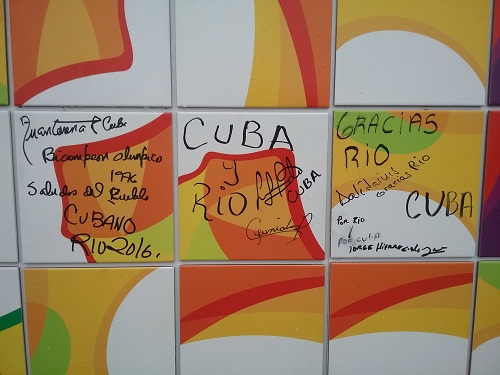 Juantorena Cuba
Bicampeon olimpico
1976
Saludos del Pueblo
CUBANO
RIO-2016.
CUBA
y
RIO
CUBA
GRACIAS
RIO
Gracias Rio
CUBA
POR RIO
y
POR CUBA
JORGE